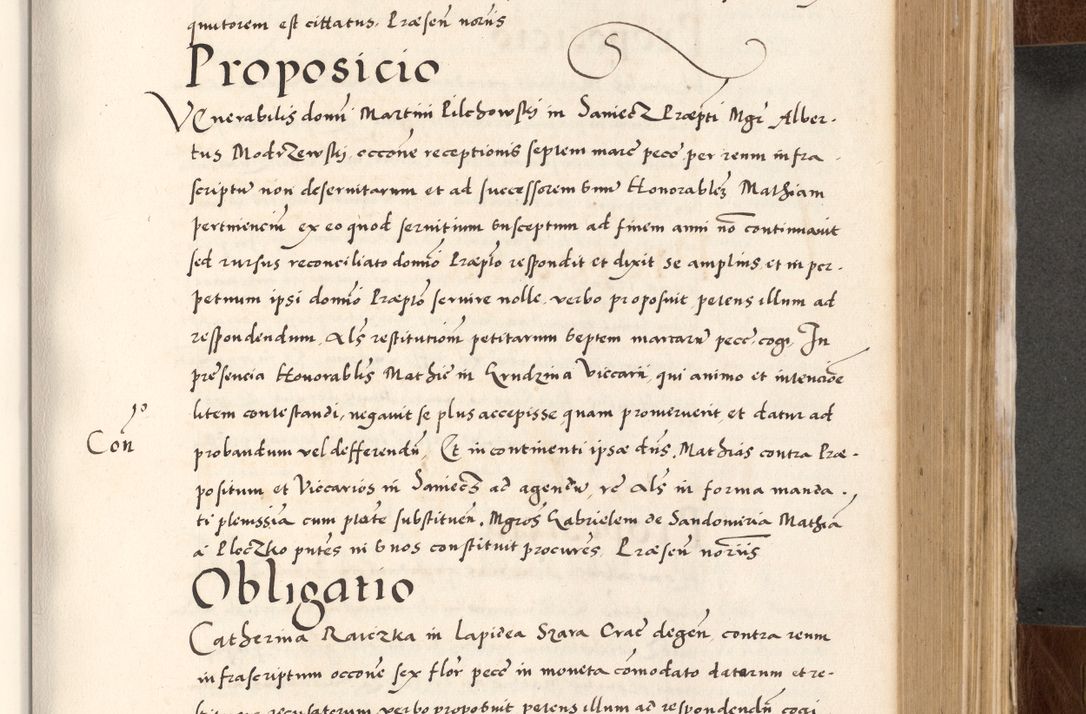 quutorem est cittatus, Præsen̄ noriis
Proposicio
VEnerabilis domi Martini Pilchowski in Saniecz Præpti Mgr Alber-
tus Modrzewski, occone receptionis septem marc pecc per reum infra
scriptu non deservitarum et ad successorem suu Honorablez Mathiam
pertinenciu ex eo quod servitium susceptum ad finem anni nō continuavit
sed rursus reconciliato domio Præpto respondit et dixit se amplius et in per-
petuum ipsi domio Præpto servire nolle, verbo proposuit petens illum ad
respondendum, Als restitutiom petitarum septem marcaru pecc, cogi, In
presencia Honorablis Mathie in Grudzina Viccarii, qui animo et intencioe
litem contestandi, negavit se plus accepisse quam promeruerit et datur ad
probandum vel defferendu, Et in continenti ipsæ dns Mathias contra Præ-
Con 1º
positum et Viccarios in Saniecz ad agendu, rc Als in forma manda
ti plenissia cum ptate substituen. Mgros Gabrielem de Sandomiria Mathia
a Ploczko pntes ni suos constituit procures, Præsen noriis
Obligatio
Catherina Raiczka in Lapidea Szara Crac degen, contra reum
infrascriptum occone sex flor pecc in moneta comodato datarum et re-
recusatorum verbo proposuit petens illum ad respondendu cogi